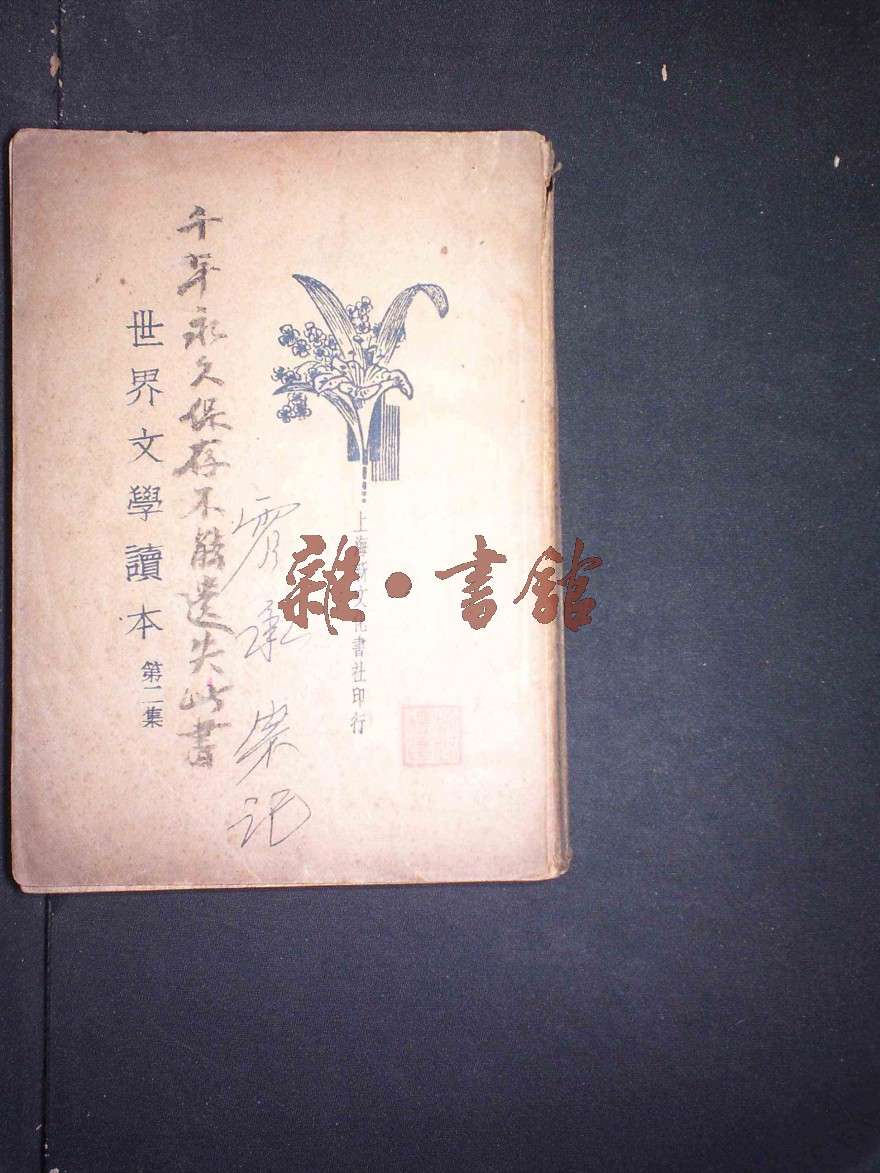 上海新文化書社印行
承 记
千年永久保存不能遺失此書
世界文學讀本
第二集
雜·書館